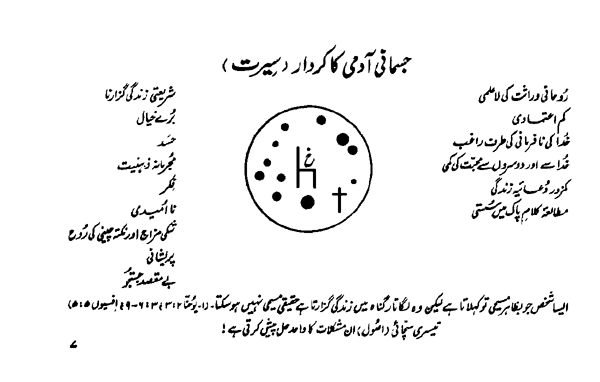 جسمانی آدمی کا کردار (سیرت)
رُوحانی وراثت کی لاعلمی
کم اعتمادی
خُدا کی نافرمانی کی طرف راغب
خُدا سے اور دوسروں سے محبت کی کمی
کمزور دُعائیہ زندگی
مطالعۂ کلامِ پاک میں سُستی
شریعتی زندگی گزارنا
بُرے خیال
حسد
مُجرمانہ ذہنیت
فکر
نااُمیدی
تنکی مزاج اور نکتہ چینی کی رُوح
پریشانی
بے مقصد جستجُو
خ
ایسا شخص جو بظاہر مسیحی تو کہلاتا ہے لیکن وہ لگاتار گناہ میں زندگی گزارتا ہے حقیقی مسیحی نہیں ہو سکتا۔ (ا۔یوحنا ۲:۳؛ ۳:۶-۹؛ افسیوں ۵:۵)
تیسری سچائی (اصُول) ان مشکلات کا واحد حل پیش کرتی ہے!
۷